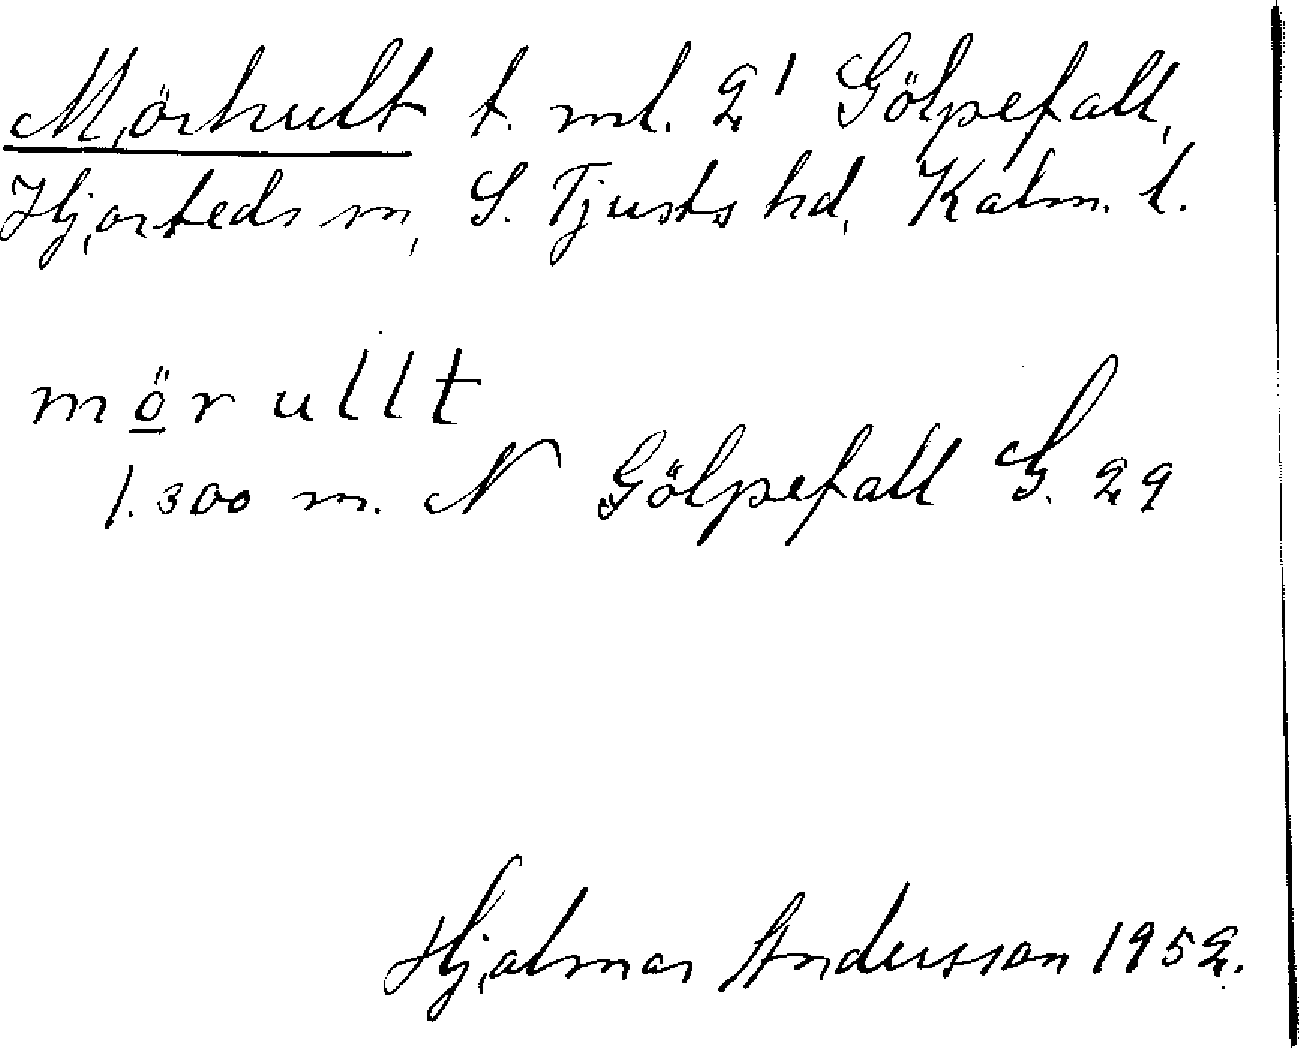 Mörhult t. ml. 2¹ Gölpefall,
Hjorteds sn, S. Tjusts hd, Kalm. l.
mörullt
1.300 m. N Gölpefall G. 29
Hjalmar Andersson 1952.